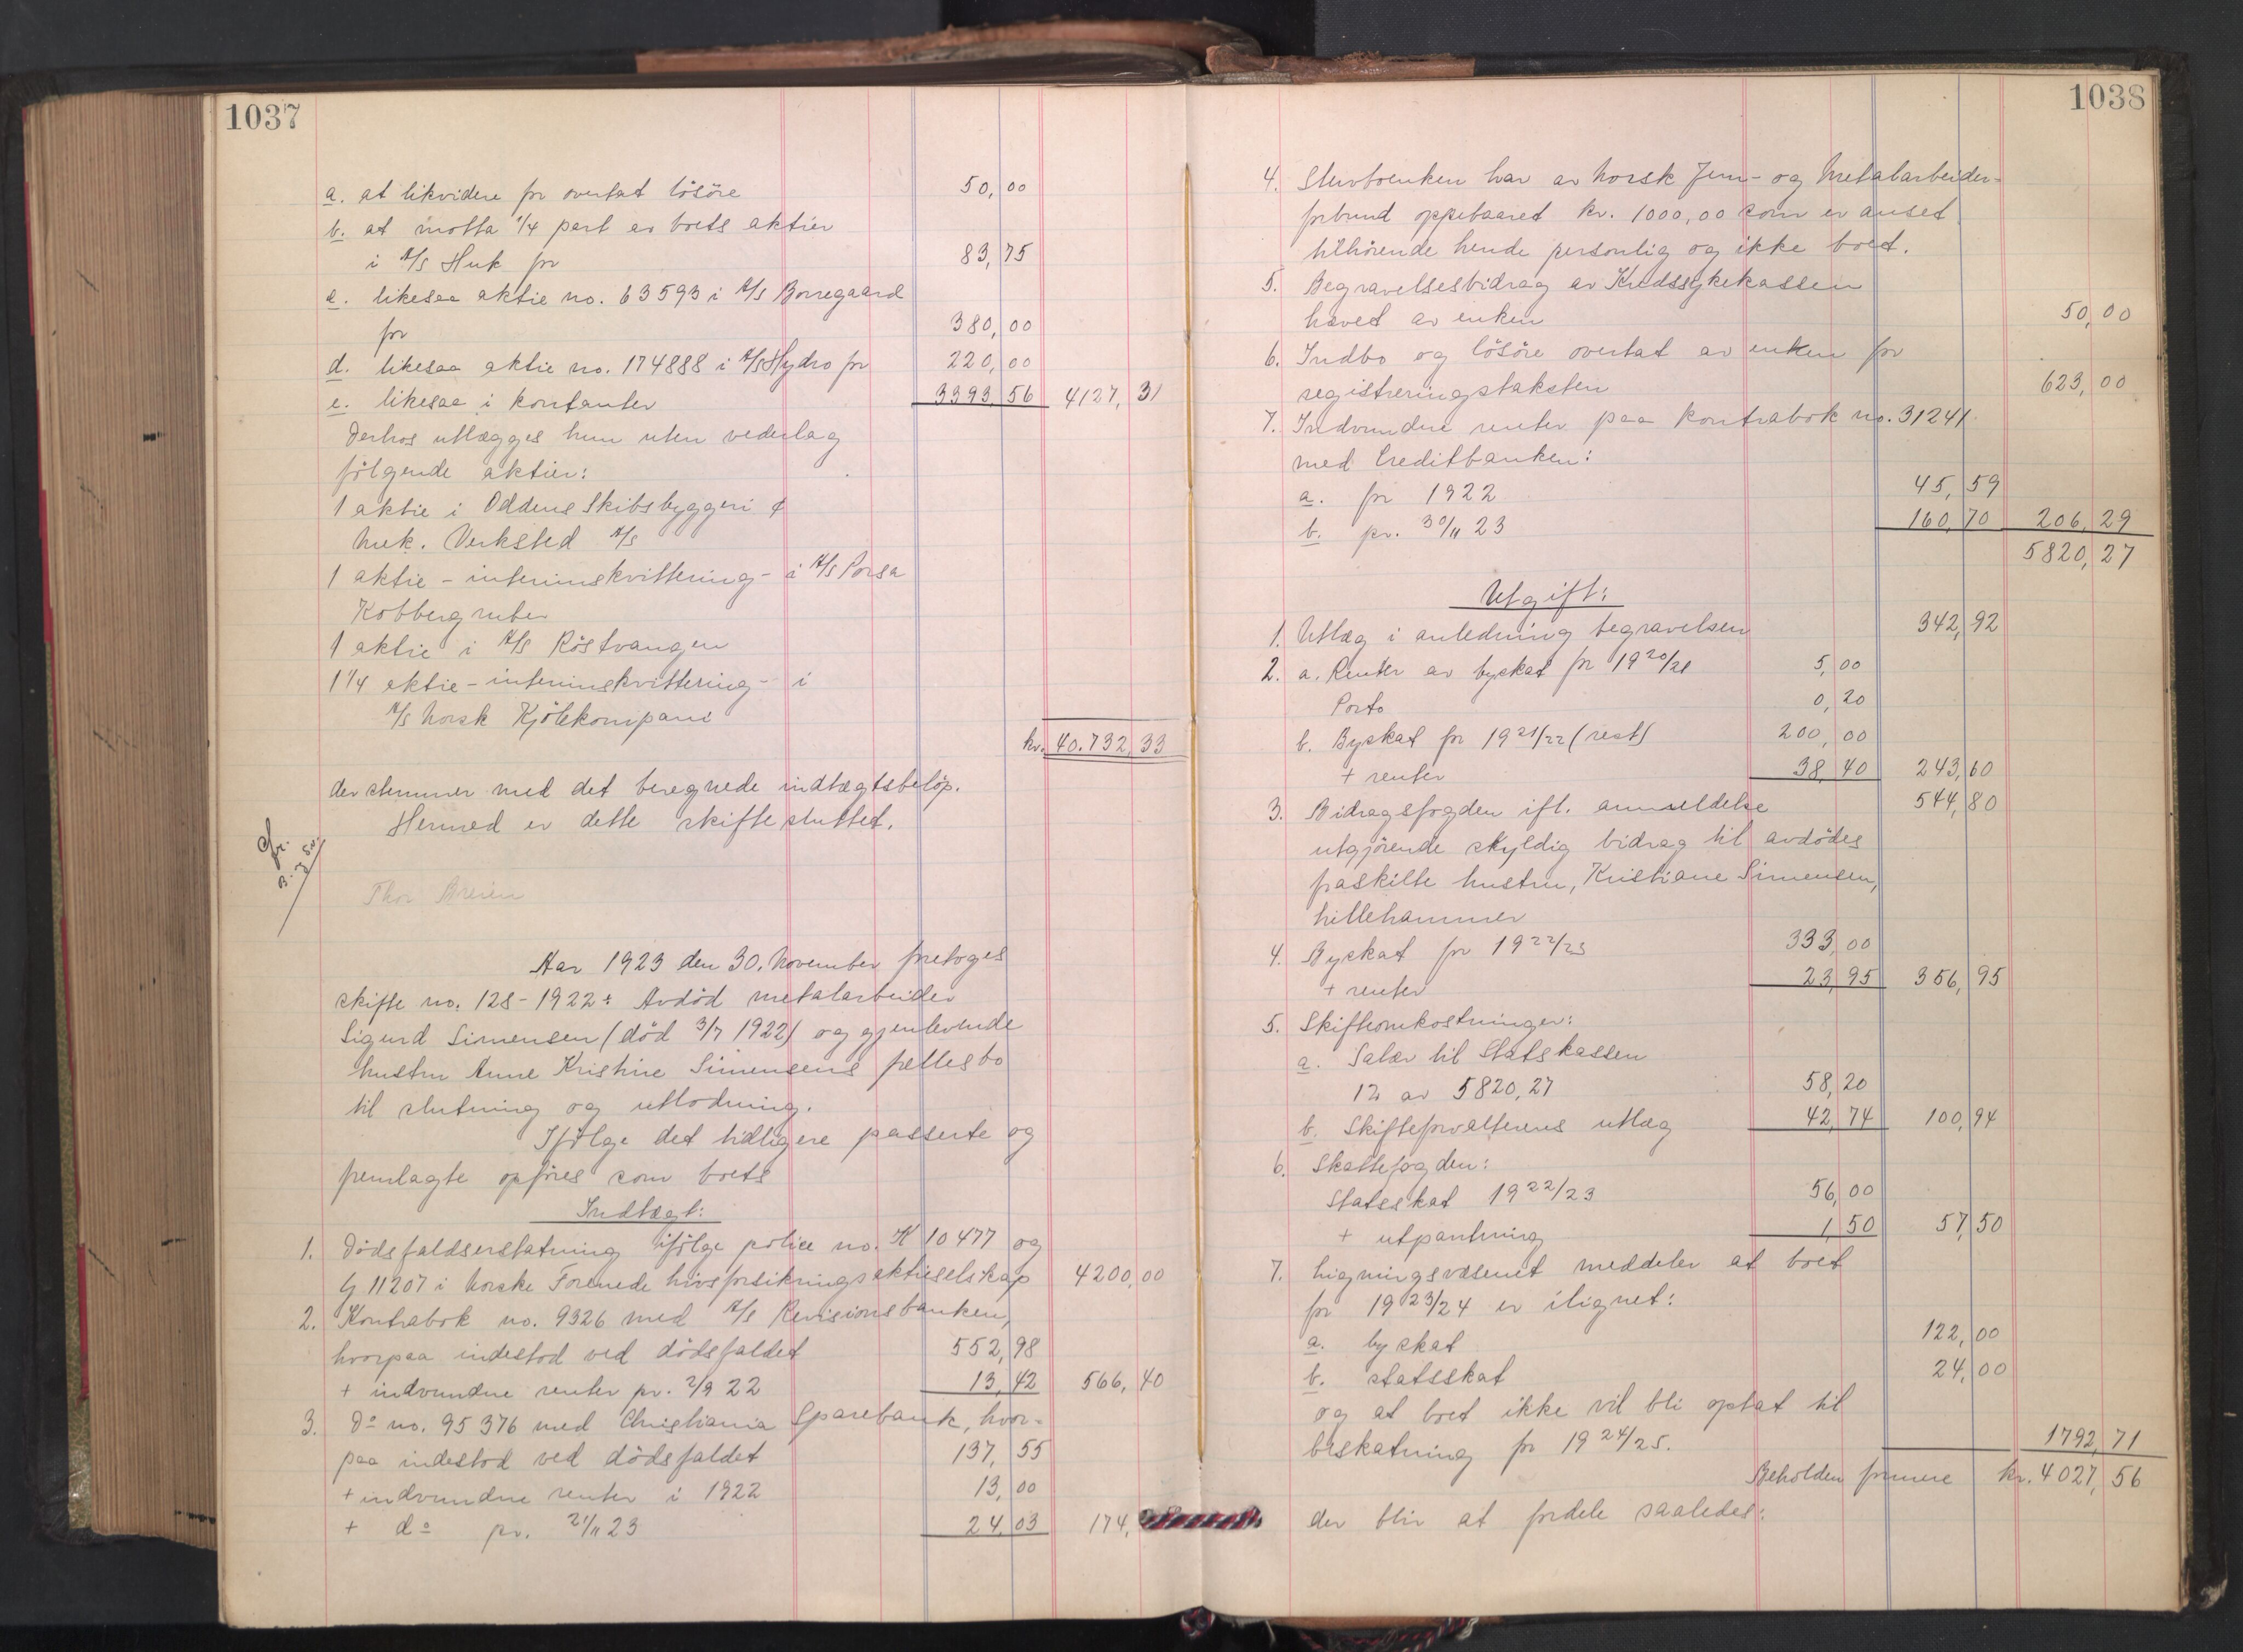 1037
a. at likvidere for overtat lösöre 50,00
b. at motta 1/4 part av boets aktier
i A/S Huk for 83,75
c. likesaa aktie no. 63593 i A/S Borregaard
for 380,00
d. likesaa aktie no. 174888 i A/S Hydro for 220,00
e. likesaa i kontanter 3393,56 4127,31
Derhos utlægges hun uten vederlag
følgende aktier:
1 aktie i Oddens Skibsbyggeri &
Mek. Verksted A/S
1 aktie - interimskvittering - i A/S Porsa
Kobbergruber
1 aktie i A/S Röstvangen
1 1/4 aktie - interimskvittering - i
A/S Norsk Kjölekompani
kr. 40.732,33
der stemmer med det beregnede indtægtsbelöp.
Hermed er dette skifte sluttet.
Thor Breien
Aar 1923 den 30. November foretoges
skifte no. 128-1922: Avdöd metalarbeider
Sigurd Simensen (död 3/7 1922) og gjenlevende
hustru Anne Kristine Simensens fællesbo
til slutning og utlodning.
Ifölge det tidligere passerte og
fremlagte opföres som boets
Indtægt:
1. Dödsfaldserstatning ifölge police no. K 10477 og
G 11207 i Norske Forenede Livsforsikringsaktieselskap 4200,00
2. Kontrabok no. 9326 med A/S Revisionsbanken,
hvorpaa indestod ved dödsfaldet 552,98
+ indvundne renter pr. 2/9 22 13,42 566,40
3. Do no. 95376 med Christiania Sparebank, hvor-
paa indestod ved dödsfaldet 137,55
+ indvundne renter i 1922 13,00
+ do pr. 21/11 23 24,03 174,
1038
4. Stervboenken har av Norsk Jern- og Metalarbeider-
forbund oppebaaret kr. 1000,00 som er anset
tilhörende hende personlig og ikke boet.
5. Begravelsesbidrag av Kredssykekassen
hævet av enken 50,00
6. Indbo og lösöre overtat av enken for
registreringstaksten 623,00
7. Indvundne renter paa kontrabok no. 31241
med Creditbanken:
a. for 1922 45,59
b. pr. 30/11 23 160,70 206,29
5820,27
Utgift:
1. Utlæg i anledning begravelsen 342,92
2. a. Renter av byskat for 1920/21 5,00
Porto 0,20
b. Byskat for 1921/22 (rest) 200,00
+ renter 38,40 243,60
3. Bidragsfogden ifl. anmeldelse 544,80
utgjörende skyldig bidrag til avdödes
fraskilte hustru, Kristiane Simensen,
Lillehammer
4. Byskat for 1922/23 333,00
+ renter 23,95 356,95
5. Skifteomkostninger:
a. Salær til Statskassen
1% av 5820,27 58,20
b. Skifteforvalterens utlæg 42,74 100,94
6. Skattefogden:
Statsskat 1922/23 56,00
+ utpantning 1,50 57,50
7. Ligningsvæsenet meddeler at boet
for 1923/24 er ilignet:
a. byskat 122,00
b. statsskat 24,00
og at boet ikke vil bli optat til
beskatning for 1924/25. 1792,71
Beholden formue kr. 4027,56
der blir at fordele saaledes: